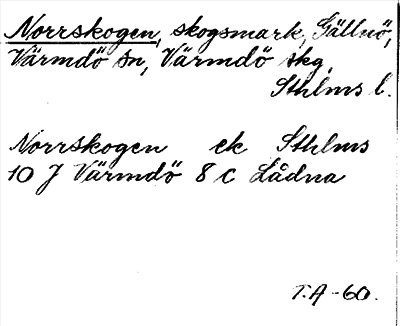 Norrskogen, skogsmark, Gällnö,
Värmdö sn, Värmdö skg,
Sthlms l.
Norrskogen ek Sthlms
10 J Värmdö 8 c Lådna
T.A-60.